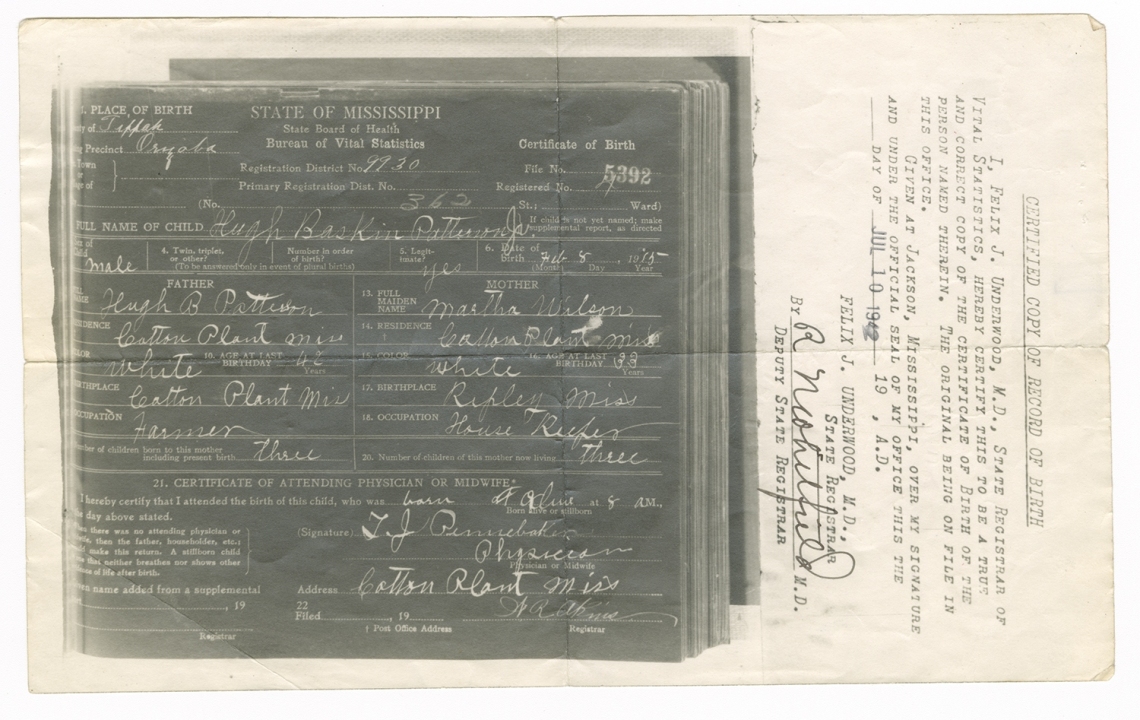 1. PLACE OF BIRTH
STATE OF MISSISSIPPI
State Board of Health
Bureau of Vital Statistics
Certificate of Birth
nty of Tippah
ng Precinct Oryoba
Town
or
ge of
Registration District No. 9930
File No. 5392
Primary Registration Dist. No.
Registered No.
(No. 362 St.; Ward)
FULL NAME OF CHILD Hugh Baskin Patterson Jr
If child is not yet named; make
supplemental report, as directed
Sex of
Child male
4. Twin, triplet,
or other?
Number in order
of birth?
(To be answered only in event of plural births)
5. Legit-
imate? yes
6. Date of
birth Feb 8, 1915
(Month) Day Year
FATHER
FULL
NAME Hugh B Patterson
RESIDENCE
Cotton Plant Miss
COLOR
white
10. AGE AT LAST
BIRTHDAY 42
Years
BIRTHPLACE
Cotton Plant Mis
OCCUPATION
Farmer
MOTHER
13. FULL
MAIDEN
NAME Martha Wilson
14. RESIDENCE
Cotton Plant Miss
15. COLOR
white
16. AGE AT LAST
BIRTHDAY 33
Years
17. BIRTHPLACE
Ripley Miss
18. OCCUPATION
House Keeper
mber of children born to this mother
including present birth three
20. Number of children of this mother now living three
21. CERTIFICATE OF ATTENDING PHYSICIAN OR MIDWIFE*
I hereby certify that I attended the birth of this child, who was born alive at 8 AM.,
Born alive or stillborn
e day above stated.
en there was no attending physician or
wife, then the father, householder, etc.,
ld make this return. A stillborn child
e that neither breathes nor shows other
nce of life after birth.
(Signature) T. J. Pennebaker
Physician
Physician or Midwife
ven name added from a supplemental
Address Cotton Plant Miss
, 19
22
Filed , 19
Registrar
† Post Office Address
Registrar
CERTIFIED COPY OF RECORD OF BIRTH
I, FELIX J. UNDERWOOD, M.D., STATE REGISTRAR OF
VITAL STATISTICS, HEREBY CERTIFY THIS TO BE A TRUE
AND CORRECT COPY OF THE CERTIFICATE OF BIRTH OF THE
PERSON NAMED THEREIN. THE ORIGINAL BEING ON FILE IN
THIS OFFICE.
GIVEN AT JACKSON, MISSISSIPPI, OVER MY SIGNATURE
AND UNDER THE OFFICIAL SEAL OF MY OFFICE THIS THE
DAY OF JUL 10 1942 19 , A.D.
FELIX J. UNDERWOOD, M.D.,
STATE REGISTRAR
BY R N Whitfield M.D.
DEPUTY STATE REGISTRAR